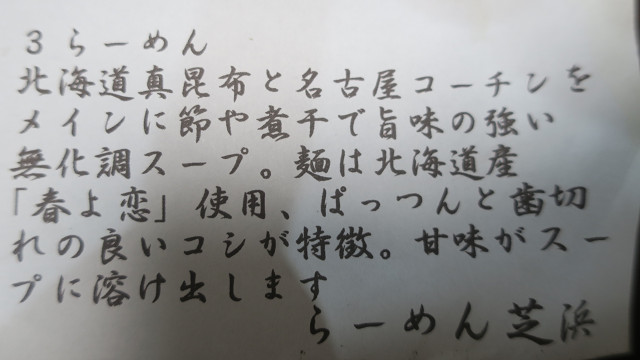 3らーめん
北海道真昆布と名古屋コーチンを
メインに節や煮干で旨味の強い
無化調スープ。麺は北海道産
「春よ恋」使用、ぱっつんと歯切
れの良いコシが特徴。甘味がスー
プに溶け出します
らーめん芝浜